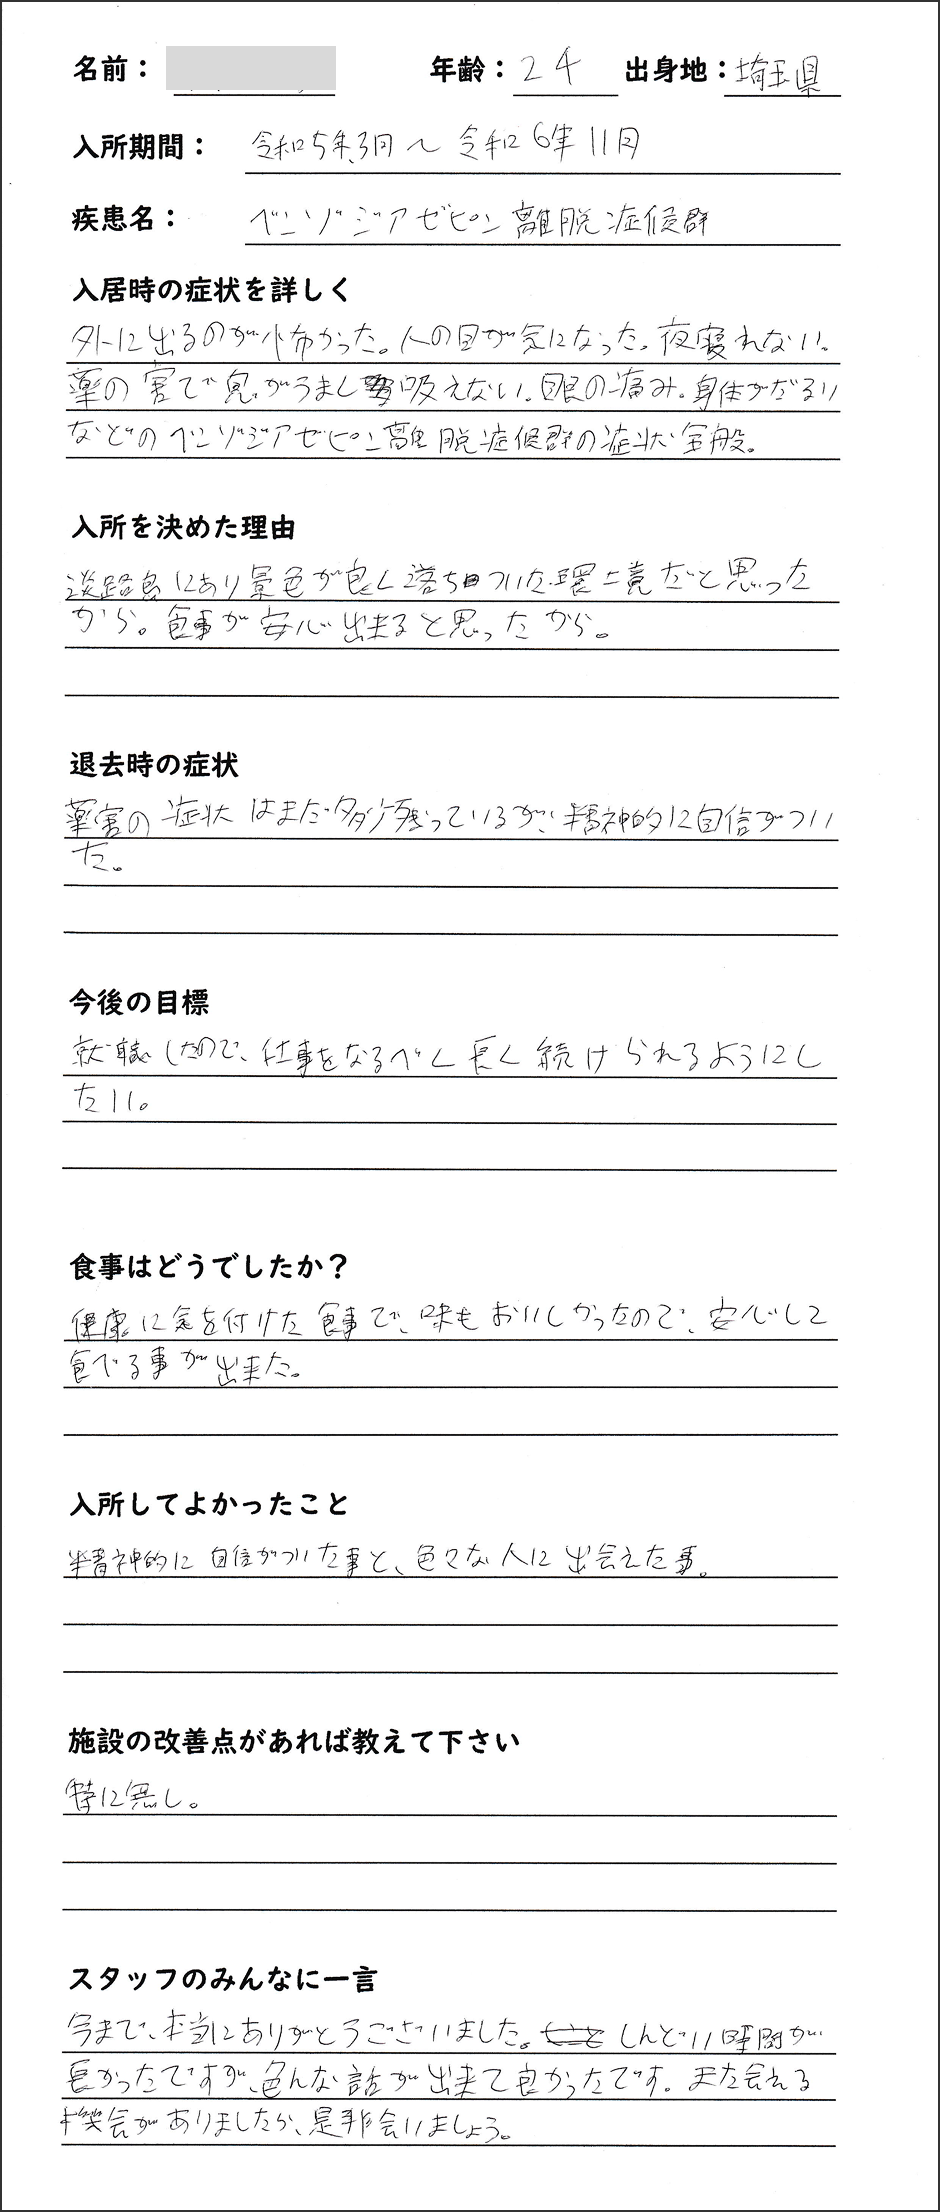 名前： 年齢：24 出身地：埼玉県
入所期間： 令和5年3月～令和6年11月
疾患名： ベンゾジアゼピン離脱症候群
入居時の症状を詳しく
外に出るのが怖かった。人の目が気になった。夜寝れない。
薬の害で息がうまく吸えない。眼の痛み。身体がだるい
などのベンゾジアゼピン離脱症候群の症状全般。
入所を決めた理由
淡路島にあり景色が良く落ちついた環境だと思った
から。食事が安心出来ると思ったから。
退去時の症状
薬害の症状はまだ多少残っているが、精神的に自信がつい
た。
今後の目標
就職したので、仕事をなるべく長く続けられるようにし
たい。
食事はどうでしたか？
健康に気を付けた食事で、味もおいしかったので、安心して
食べる事が出来た。
入所してよかったこと
精神的に自信がついた事と、色々な人に出会えた事。
施設の改善点があれば教えて下さい
特に無し。
スタッフのみんなに一言
今まで、本当にありがとうございました。しんどい時間が
長かったですが、色んな話が出来て良かったです。また会える
機会がありましたら、是非会いましょう。